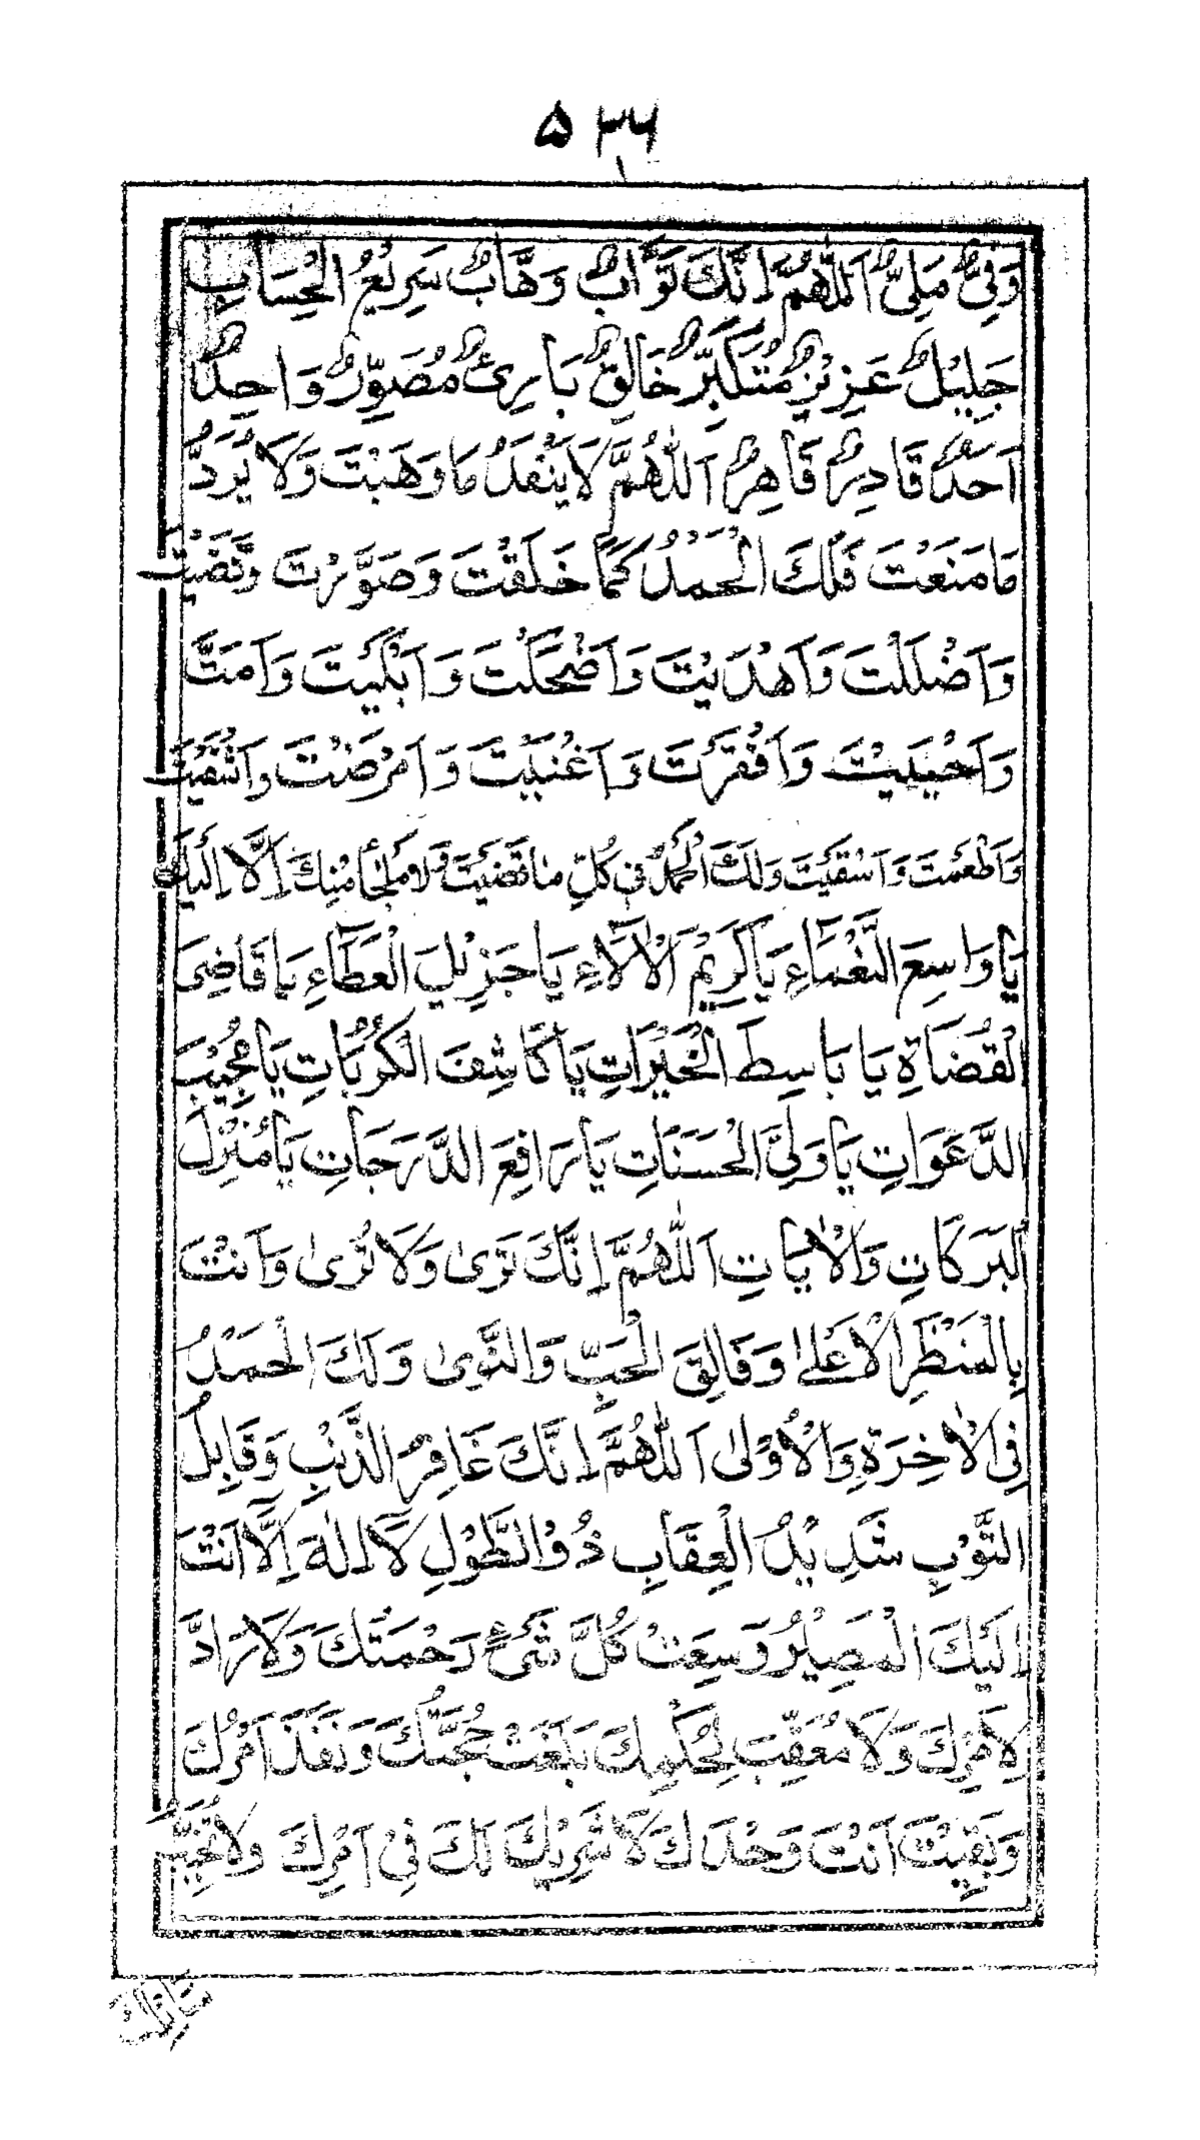 ۵۳۶
وَفِیٌّ مَلِیٌّ اَللّٰهُمَّ اِنَّكَ تَوَّابٌ وَهَّابٌ سَرِیْعُ الْحِسَابِ
جَلِیْلٌ عَزِیْزٌ مُتَكَبِّرٌ خَالِقٌ بَارِئٌ مُصَوِّرٌ وَاحِدٌ
اَحَدٌ قَادِرٌ قَاهِرٌ اَللّٰهُمَّ لَا یَنْفَدُ مَا وَهَبْتَ وَلَا یُرَدُّ
مَا مَنَعْتَ فَلَكَ الْحَمْدُ كَمَا خَلَقْتَ وَصَوَّرْتَ وَقَضَیْتَ
وَاَضْلَلْتَ وَاَهْدَیْتَ وَاَضْحَكْتَ وَاَبْكَیْتَ وَاَمَتَّ
وَاَحْیَیْتَ وَاَفْقَرْتَ وَاَغْنَیْتَ وَاَمْرَضْتَ وَاَشْفَیْتَ
وَاَطْعَمْتَ وَاَسْقَیْتَ وَلَكَ الْحَمْدُ فِی كُلِّ مَا قَضَیْتَ وَلَا مَلْجَأَ مِنْكَ اِلَّا اِلَیْكَ
یَا وَاسِعَ النَّعْمَاءِ یَا كَرِیْمَ الْاٰلَاءِ یَا جَزِیْلَ الْعَطَاءِ یَا قَاضِیَ
الْقُضَاةِ یَا بَاسِطَ الْخَیْرَاتِ یَا كَاشِفَ الْكُرُبَاتِ یَا مُجِیْبَ
الدَّعَوَاتِ یَا وَلِیَّ الْحَسَنَاتِ یَا رَافِعَ الدَّرَجَاتِ یَا مُنْزِلَ
الْبَرَكَاتِ وَالْاٰیَاتِ اَللّٰهُمَّ اِنَّكَ تَرٰی وَلَا تُرٰی وَاَنْتَ
بِالْمَنْظَرِ الْاَعْلٰی وَفَالِقَ الْحَبِّ وَالنَّوٰی وَلَكَ الْحَمْدُ
فِی الْاٰخِرَةِ وَالْاُوْلٰی اَللّٰهُمَّ اِنَّكَ غَافِرُ الذَّنْبِ وَقَابِلُ
التَّوْبِ شَدِیْدُ الْعِقَابِ ذُو الطَّوْلِ لَا اِلٰهَ اِلَّا اَنْتَ
اِلَیْكَ الْمَصِیْرُ وَسِعَتْ كُلَّ شَیْءٍ رَحْمَتُكَ وَلَا رَادَّ
لِاَمْرِكَ وَلَا مُعَقِّبَ لِحُكْمِكَ بَلَغَتْ حُجَّتُكَ وَنَفَذَ اَمْرُكَ
وَبَقِیْتَ اَنْتَ وَحْدَكَ لَا شَرِیْكَ لَكَ فِیْ اَمْرِكَ وَلَا تُخَیِّبُ